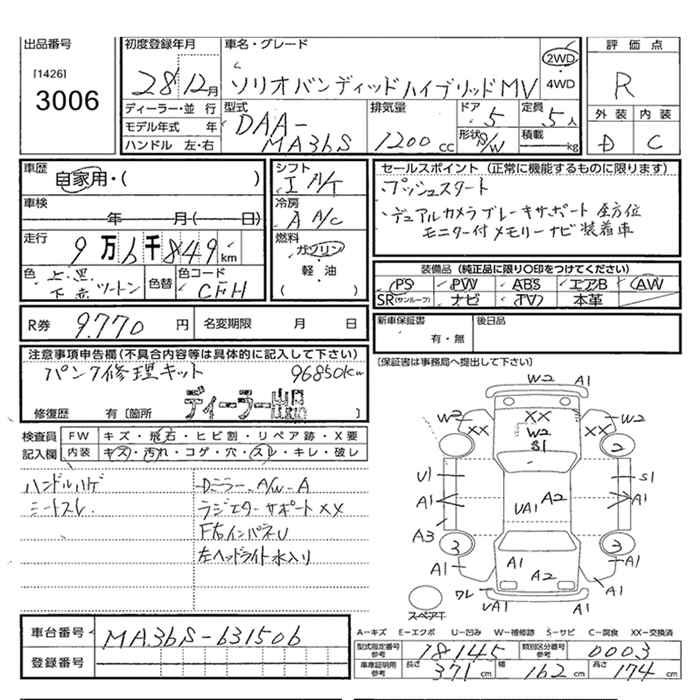 出品番号
[1426]
3006
初度登録年月
28 12月
車名・グレード
ソリオバンディッドハイブリッドMV
2WD
・
4WD
評価点
R
外装 内装
D C
ディーラー・並行
モデル年式 年
ハンドル 左・右
型式
DAA-
MA36S
排気量
1200 cc
ドア
5
形状
S/W
定員
5人
積載
kg
車歴
自家用・( )
車検
年 月( 日)
走行
9万6千849km
色
上.黒
下.赤 ツートン
色替
色コード
CFH
シフト
I A/T
冷房
A A/C
燃料
ガソリン
・
軽・油
( )
セールスポイント (正常に機能するものに限ります)
プッシュスタート
・デュアルカメラブレーキサポート 全方位
モニター付メモリーナビ装着車
装備品 (純正品に限り○印をつけてください)
PS PW ABS エアB AW
SR(サンルーフ) ナビ TV 本革
R券 9.770 円
名変期限 月 日
新車保証書
有・無
後日品
[保証書は事務局へ提出して下さい]
注意事項申告欄(不具合内容等は具体的に記入して下さい)
パンク修理キット 96850km
ディーラー出品
修復歴 有〔箇所
検査員
記入欄
FW キズ・飛石・ヒビ割・リペア跡・X要
内装 キズ・汚れ・コゲ・穴・スレ・キレ・破レ
ハンドルハゲ
シートスレ
Dミラー、A/W-A
ラジエターサポートXX
F右インパネU
左ヘッドライト水入り
W2 A1
W2 XX XX W2
W2
S1
2
U1 S1
A1 A2 A1
VA1
A3 3 3
A1 A1 A2 A1
ワレ VA1 A1 A1
スペアT
車台番号 MA36S-631506
登録番号
A-キズ E-エクボ U-凹み W-補修跡 S-サビ C-腐食 XX-交換済
型式指定番号
参考
18145
類別区分番号
参考
0003
車庫証明用
参考
長さ 371cm 幅 162cm 高さ 174cm